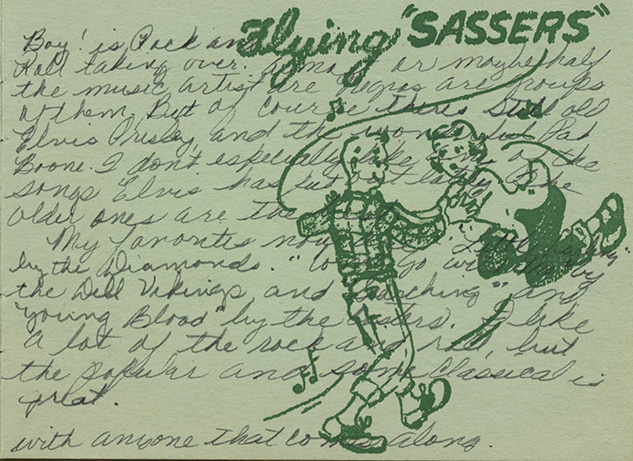 Flying "SASSERS"
Boy! is Rock and
Roll taking over. or maybe half
the music artist are negros are groups
of them. But of course there's still old
Elvis Presley, and the wonderful Pat
Boone. I don't especially like any of the
songs Elvis has put out lately. The
older ones are the
My favorites now
by the Diamonds. " go with me" by
the Dell Vikings and "Searching" and
"Young Blood" by the Coasters. I like
a lot of the rock and roll, but
the popular and some classical is
great.
with anyone that comes along.